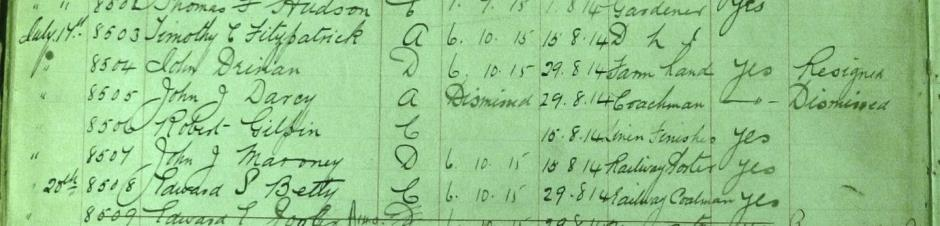 " " 8502 Thomas F Hudson C 1. 7. 15 1. 8. 14 Gardener Yes
July 17th 8503 Timothy C Fitzpatrick A 6. 10. 15 15. 8. 14 D
" 8504 John Drinan D 6. 10. 15 29. 8. 14 Farm hand Yes Resigned
" 8505 John J Darcy A Dismissed 29. 8. 14 Coachman —"— Dismissed
8506 Robert Gilpin C 15. 8. 14 Linen Finisher Yes
" 8507 John J Maroney D 6. 10. 15 15 8 14 Railway Porter Yes
" 20th 8508 Edward S Betty C 6. 10. 15 29. 8. 14 Railway Coalman Yes
" 8509 Edward